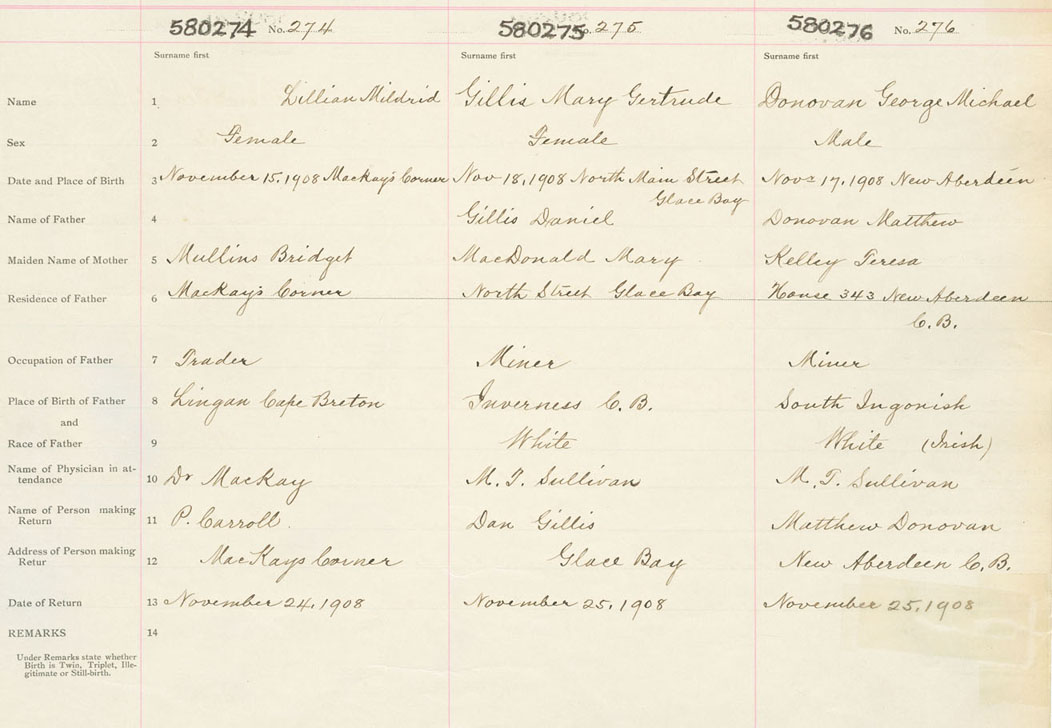 580274 No. 274 580275 No. 275 580276 No. 276
Surname first Surname first Surname first
Name 1 Lillian Mildrid Gillis Mary Gertrude Donovan George Michael
Sex 2 Female Female Male
Date and Place of Birth 3 November 15, 1908 Mackay's Corner Nov 18, 1908 North Main Street Nov 17, 1908 New Aberdeen
Glace Bay
Name of Father 4 Gillis Daniel Donovan Matthew
Maiden Name of Mother 5 Mullins Bridget MacDonald Mary Kelley Teresa
Residence of Father 6 MacKay's Corner North Street Glace Bay House 343 New Aberdeen
C.B.
Occupation of Father 7 Trader Miner Miner
Place of Birth of Father 8 Lingan Cape Breton Inverness C.B. South Ingonish
and
Race of Father 9 White White (Irish)
Name of Physician in at-
tendance 10 Dr MacKay M. T. Sullivan M. T. Sullivan
Name of Person making
Return 11 P. Carroll. Dan Gillis Matthew Donovan
Address of Person making
Retur 12 MacKays Corner Glace Bay New Aberdeen C.B.
Date of Return 13 November 24, 1908 November 25, 1908 November 25, 1908
REMARKS 14
Under Remarks state whether
Birth is Twin, Triplet, Ille-
gitimate or Still-birth.